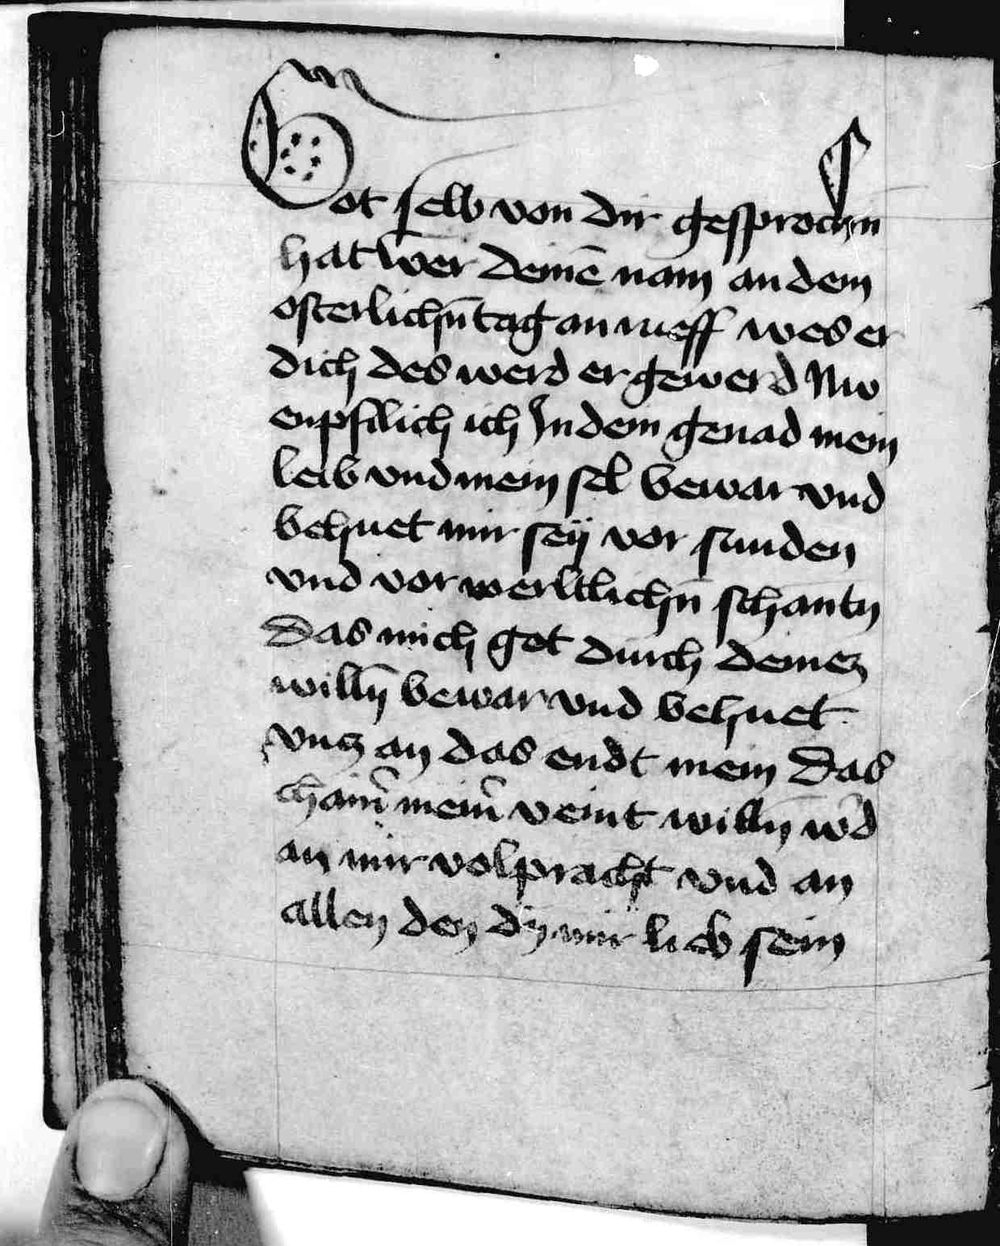 Got selb von dir gesprochn
hat wer deinē nam an dem
osterlichn̄ tag an rueff wes er
dich des werd er gewerd Nw
enpfilich ich In dein genad mein
leib vnd mein sel bewar vnd
behuet mir seÿ vor sunden
vnd vor werltlichn̄ schantn
Das mich got durch deinen
willn̄ bewar vnd behuet
vncz an das endt mein Das
chainē meinē veint willn̄ w̄d
an mir volpracht vnd an
allen den dÿ mir lieb sein